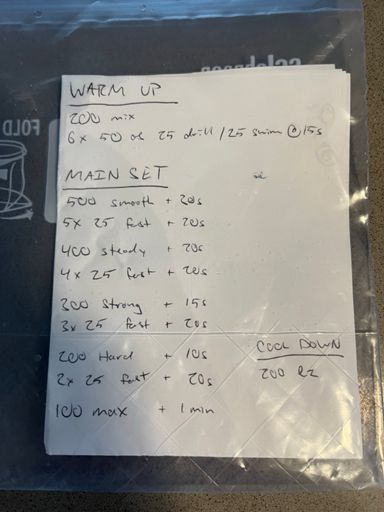 WARM UP
200 mix
6x 50 as 25 drill / 25 swim @ 15s
MAIN SET
500 smooth + 20s
5x 25 fast + 20s
400 steady + 20s
4x 25 fast + 20s
300 Strong + 15s
3x 25 fast + 20s
200 Hard + 10s
2x 25 fast + 20s
100 max + 1 min
COOL DOWN
200 EZ
FOLD